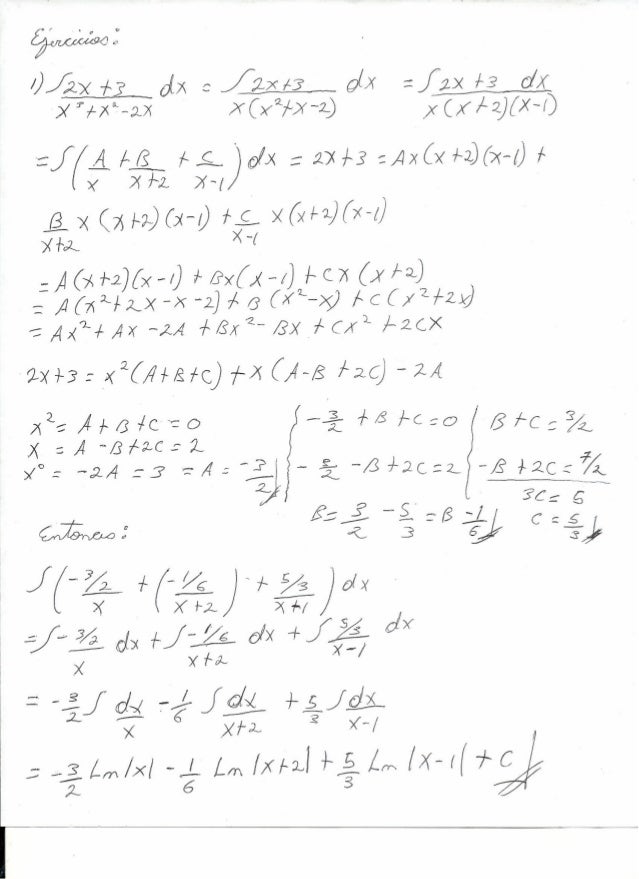 Ejercicios:
1) ∫ 2x+3 / x³+x²-2x dx = ∫ 2x+3 / x(x²+x-2) dx = ∫ 2x+3 dx / x(x+2)(x-1)
= ∫ ( A/x + B/x+2 + C/x-1 ) dx = 2x+3 = Ax(x+2)(x-1) +
B/x+2 x(x+2)(x-1) + C/x-1 x(x+2)(x-1)
= A(x+2)(x-1) + Bx(x-1) + Cx(x+2)
= A(x²+2x-x-2) + B(x²-x) + C(x²+2x)
= Ax²+Ax-2A+Bx²-Bx+Cx²+2Cx
2x+3 = x²(A+B+C) + x(A-B+2C) - 2A
x² = A+B+C = 0
x = A-B+2C = 2
x⁰ = -2A = 3 = A = -3/2
-3/2 + B + C = 0
-3/2 - B + 2C = 2
B+C = 3/2
-B+2C = 7/2
3C = 5
B = 3/2 - 5/3 = B -1/6
C = 5/3
Entonces:
∫ ( -3/2 / x + ( -1/6 / x+2 ) + 5/3 / x+1 ) dx
= ∫ -3/2 / x dx + ∫ -1/6 / x+2 dx + ∫ 5/3 / x-1 dx
= -3/2 ∫ dx/x - 1/6 ∫ dx/x+2 + 5/3 ∫ dx/x-1
= -3/2 Ln|x| - 1/6 Ln|x+2| + 5/3 Ln|x-1| + C